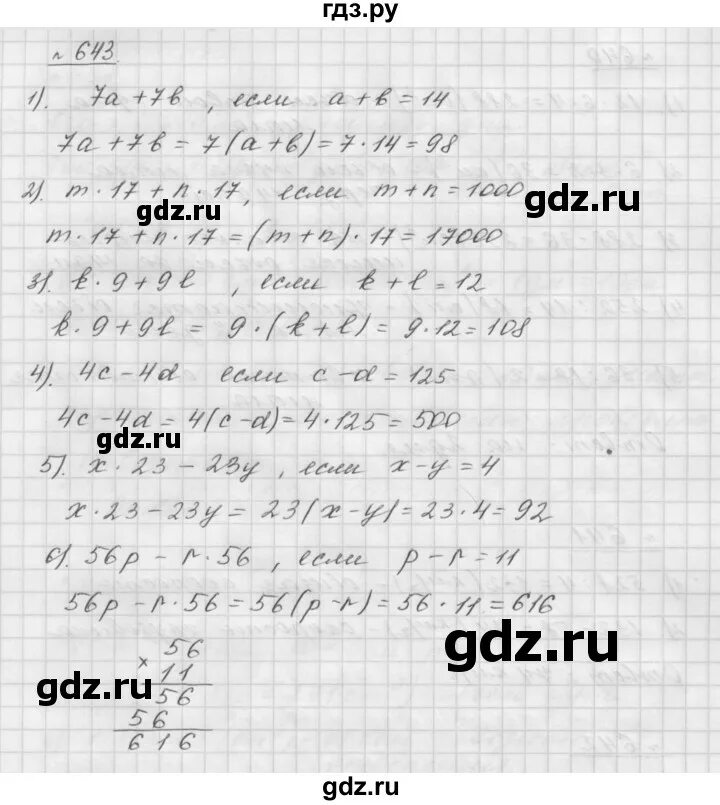 гдз.ру
№ 643.
1). 7a + 7b , если a + b = 14
7a + 7b = 7(a + b) = 7 · 14 = 98
2). m · 17 + n · 17, если m + n = 1000
gdz.ru
gdz.ru
m · 17 + n · 17 = (m + n) · 17 = 17000
3). k · 9 + 9l , если k + l = 12
k · 9 + 9l = 9 · (k + l) = 9 · 12 = 108
4). 4c - 4d если c - d = 125
4c - 4d = 4(c - d) = 4 · 125 = 500
gdz.ru
5). x · 23 - 23y , если x - y = 4
x · 23 - 23y = 23(x - y) = 23 · 4 = 92
6). 56p - r · 56 , если p - r = 11
56p - r · 56 = 56(p - r) = 56 · 11 = 616
gdz.ru
× 56
11
gdz.ru
56
56
616
gdz.ru